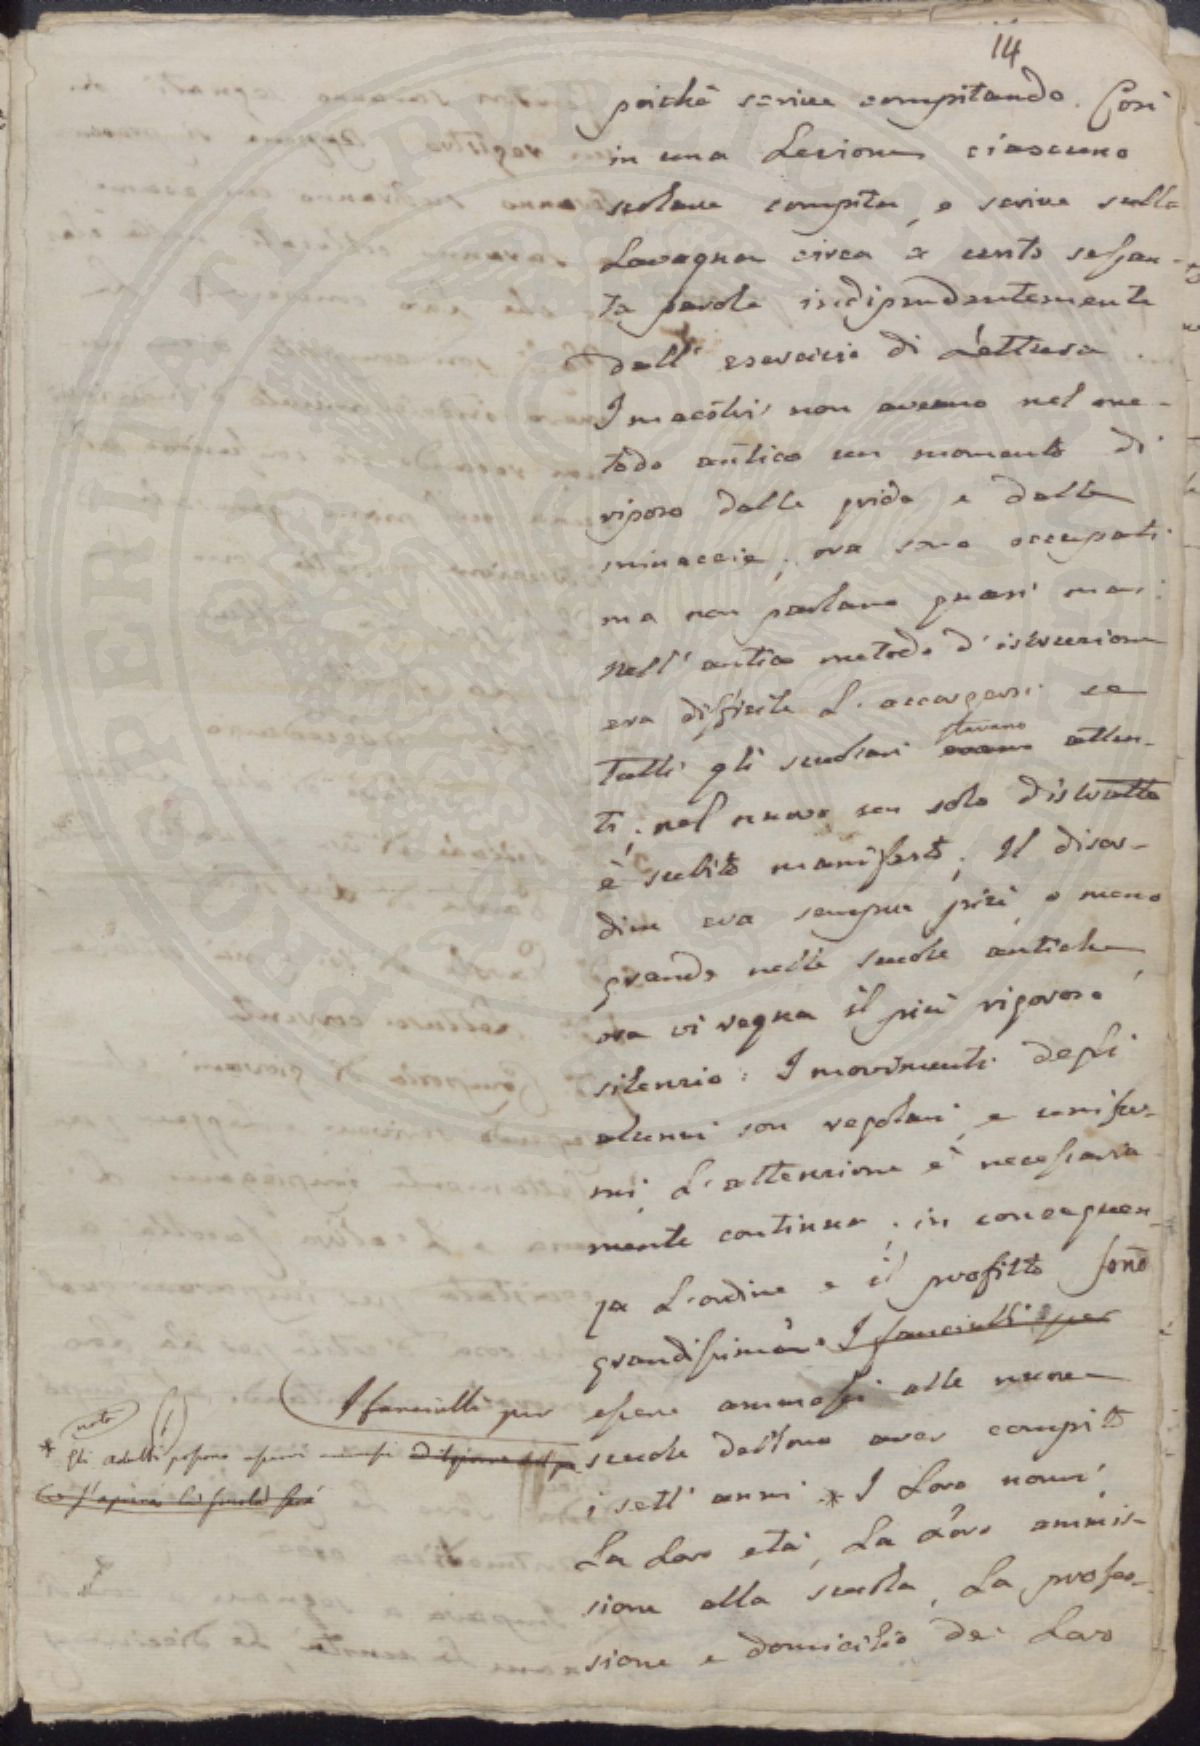 14
poichè scrive compitando. Così
in una Lezione ciascuno
scolare compita, e scrive sulla
Lavagna circa a cento sessan-
ta parole indipendentemente
dall' esercizio di Lettura.
I maestri non aveano nel me-
todo antico un momento di
riposo dalle grida e dalle
minaccie; ora sono occupati
ma non parlano quasi mai:
Nell' antico metodo d'istruzione
era difficile L'accorgersi se
stavano
tutti gli scolari erano atten-
ti; nel nuovo un solo distratto
è subito manifesto. Il disor-
dine era sempre più, o meno
grande nelle scuole antiche,
ora vi regna il più rigoroso
silenzio: I movimenti degli
alunni son regolari, e unifor-
mi, L'attenzione è necessaria
mente continua; in conseguen-
za L'ordine e il profitto sono
grandissimi. I fanciulli per
I fanciulli per essere ammessi alle nuove
scuole debbono aver compito
i sett' anni * I Loro nomi,
La Loro età, La Loro ammis-
sione alla scuola, La profes-
sione e domicilio dei Loro
nota (1)
* Gli adulti possono essere ammessi